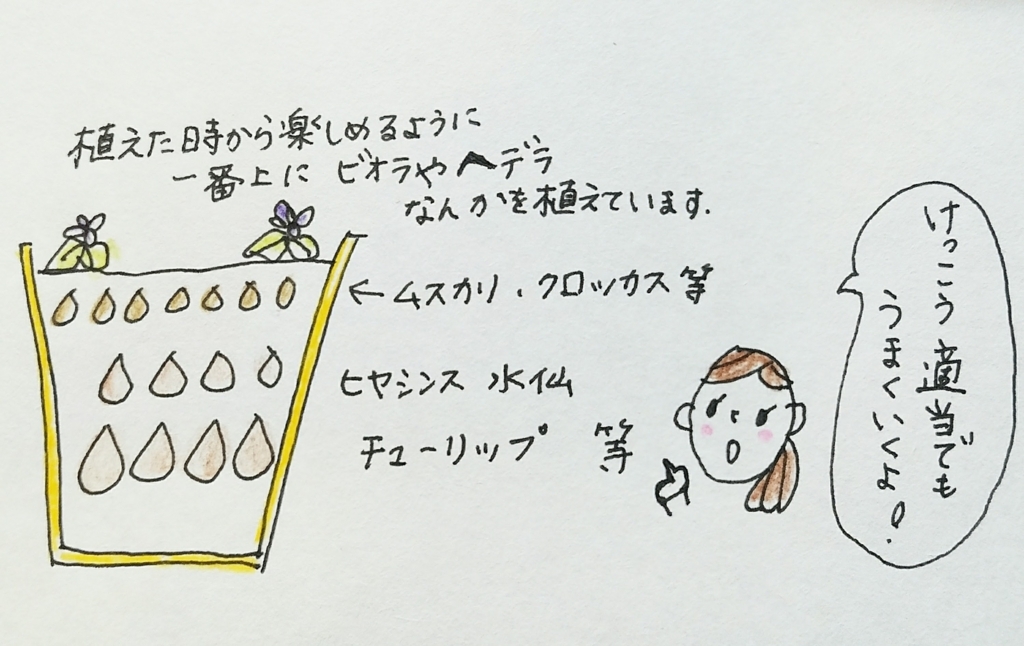 植えた時から楽しめるように
一番上に ビオラやヘデラ
なんかを植えています.
←ムスカリ、クロッカス等
ヒヤシンス 水仙
チューリップ 等
けっこう適当でも
うまくいくよ!